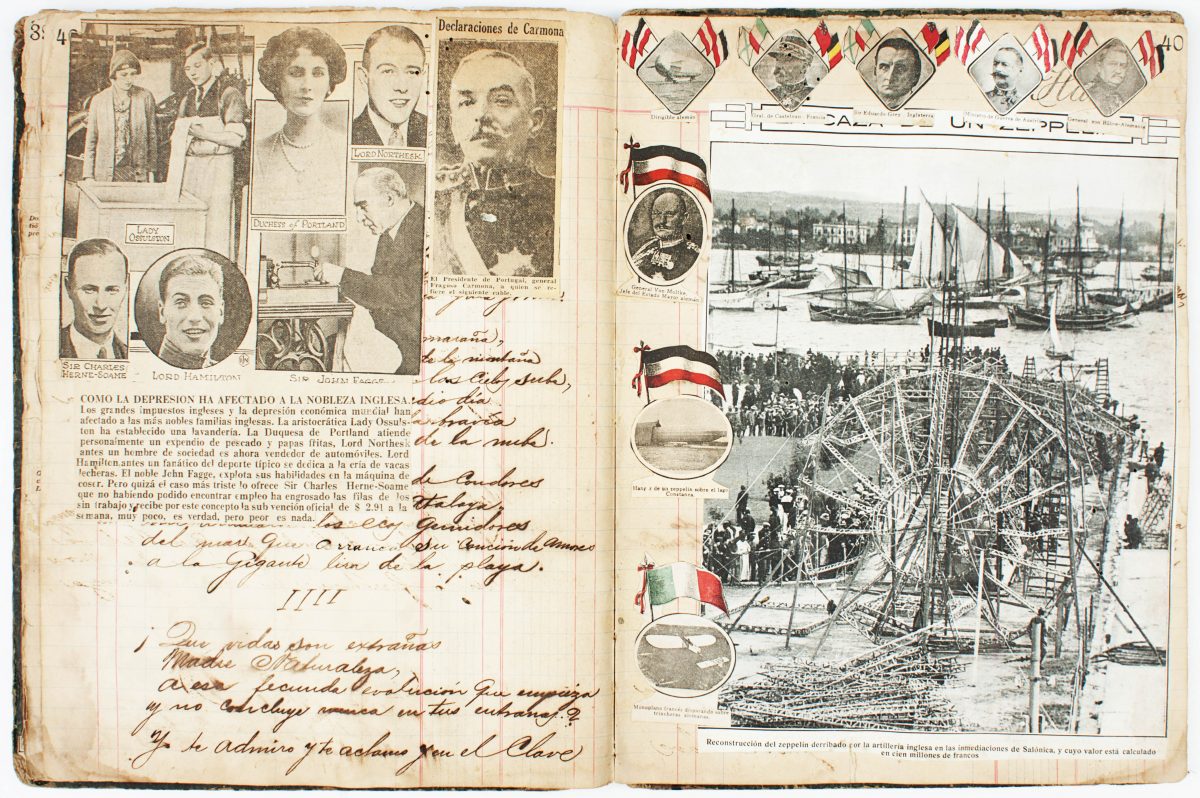 39
4
LADY
OSSULSTON
DUCHESS of PORTLAND
LORD NORTHESK
SIR CHARLES
HERNE-SOAME
LORD HAMILTON
SIR JOHN FAGGE
Declaraciones de Carmona
El Presidente de Portugal, general
Fragoso Carmona, a quien se re-
fiere el siguiente cable.
COMO LA DEPRESION HA AFECTADO A LA NOBLEZA INGLESA.
Los grandes impuestos ingleses y la depresión económica mundial han
afectado a las más nobles familias inglesas. La aristocrática Lady Ossuls-
ton ha establecido una lavandería. La Duquesa de Portland atiende
personalmente un expendio de pescado y papas fritas, Lord Northesk
antes un hombre de sociedad es ahora vendedor de automóviles. Lord
Hamilton antes un fanático del deporte típico se dedica a la cría de vacas
lecheras. El noble John Fagge, explota sus habilidades en la máquina de
coser. Pero quizá el caso más triste lo ofrece Sir Charles Herne-Soame
que no habiendo podido encontrar empleo ha engrosado las filas de los
sin trabajo y recibe por este concepto la sub vención oficial de $ 2.91 a la
semana, muy poco, es verdad, pero peor es nada.
maraña,
de la montaña
sube,
dio dia
bravia
de la nube.
de Condores
atalaya,
los ecos gemidores
del mar que arranca su canción de amores
a la Gigante lira de la playa.
IIII
¡ Que vidas son extrañas
Madre Naturaleza,
a esa fecunda evolución que empieza
y no concluye nunca en tus entrañas?
Yo te admiro y te aclamo y en el Clave
40
Dirigible alemán
Gral. de Castelnau - Francia
Sir Eduardo Grey Inglaterra
Ministro de Guerra de Austria
General von Bülow-Alemania
CAZA DE UN ZEPPELIN
General Von Moltke,
Jefe del Estado Mayor alemán
Hangar de un zeppelin sobre el lago
Constanza.
Monoplano francés disparando sobre
trincheras alemanas.
Reconstrucción del zeppelin derribado por la artillería inglesa en las inmediaciones de Salónica, y cuyo valor está calculado
en cien millones de francos